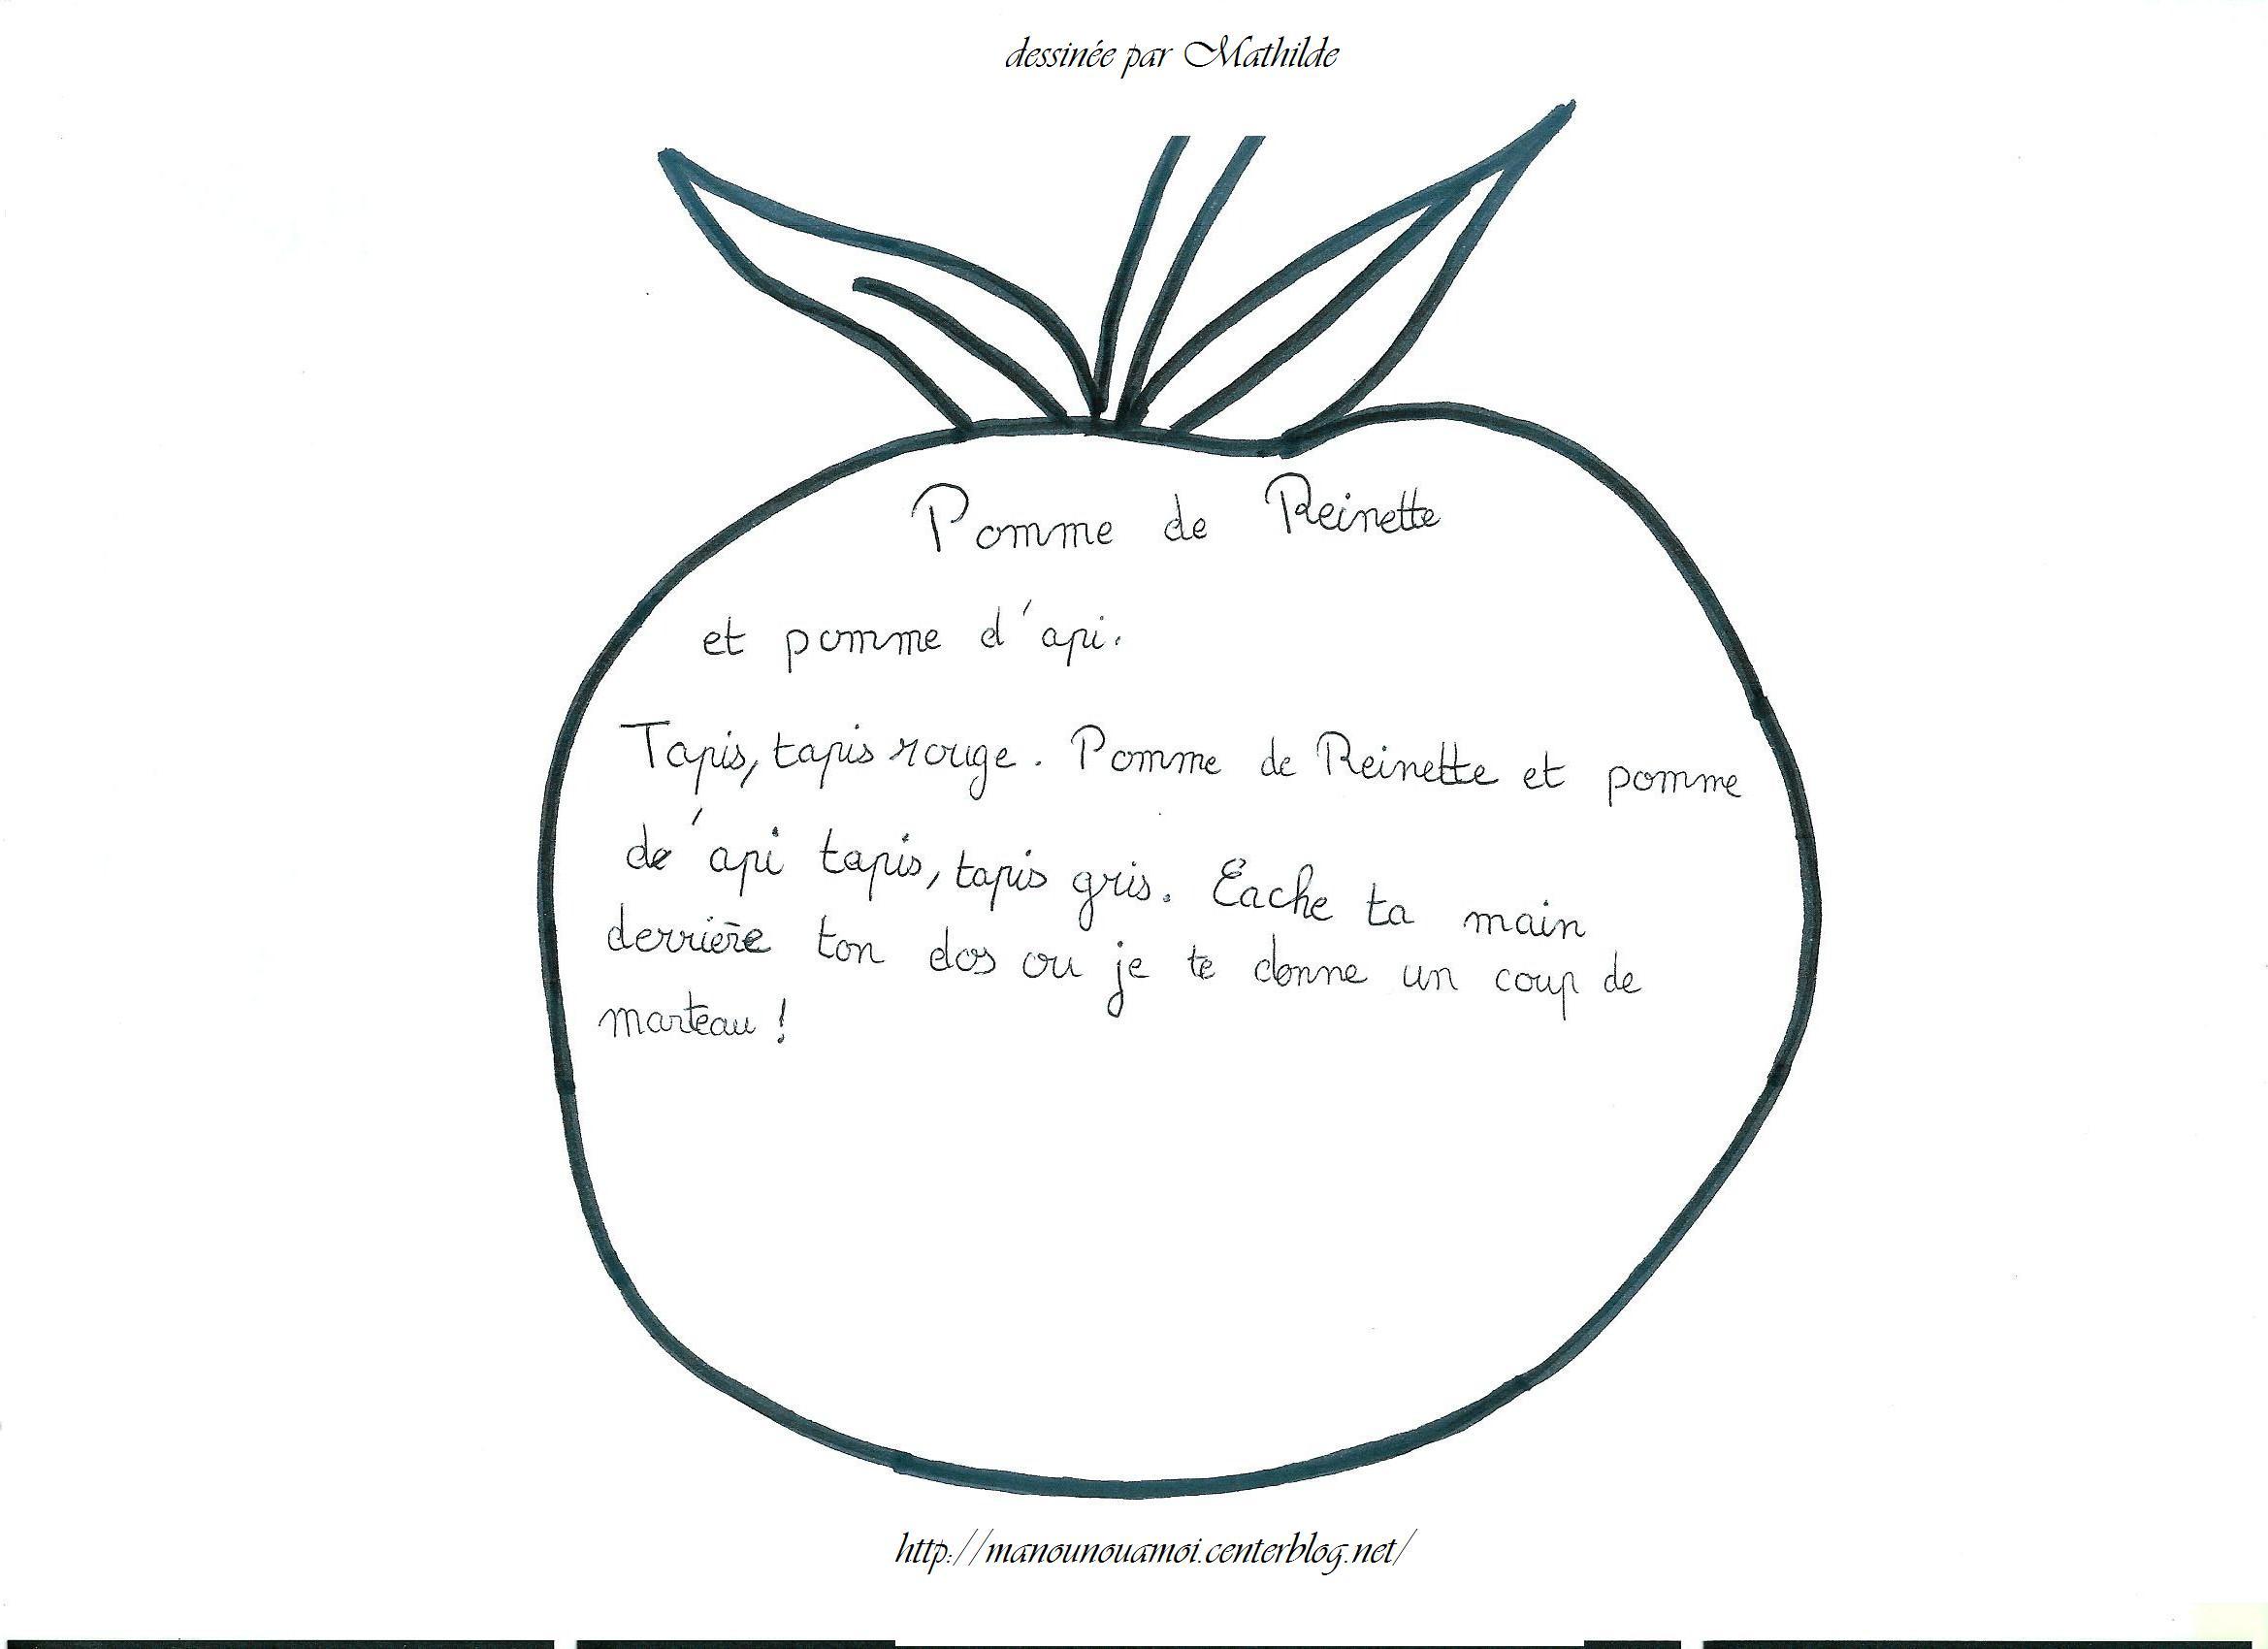 dessinée par Mathilde
Pomme de Reinette
et pomme d'api.
Tapis, tapis rouge. Pomme de Reinette et pomme
de'api tapis, tapis gris. Cache ta main
derrière ton dos ou je te donne un coup de
marteau !
http://manounouamoi.centerblog.net/